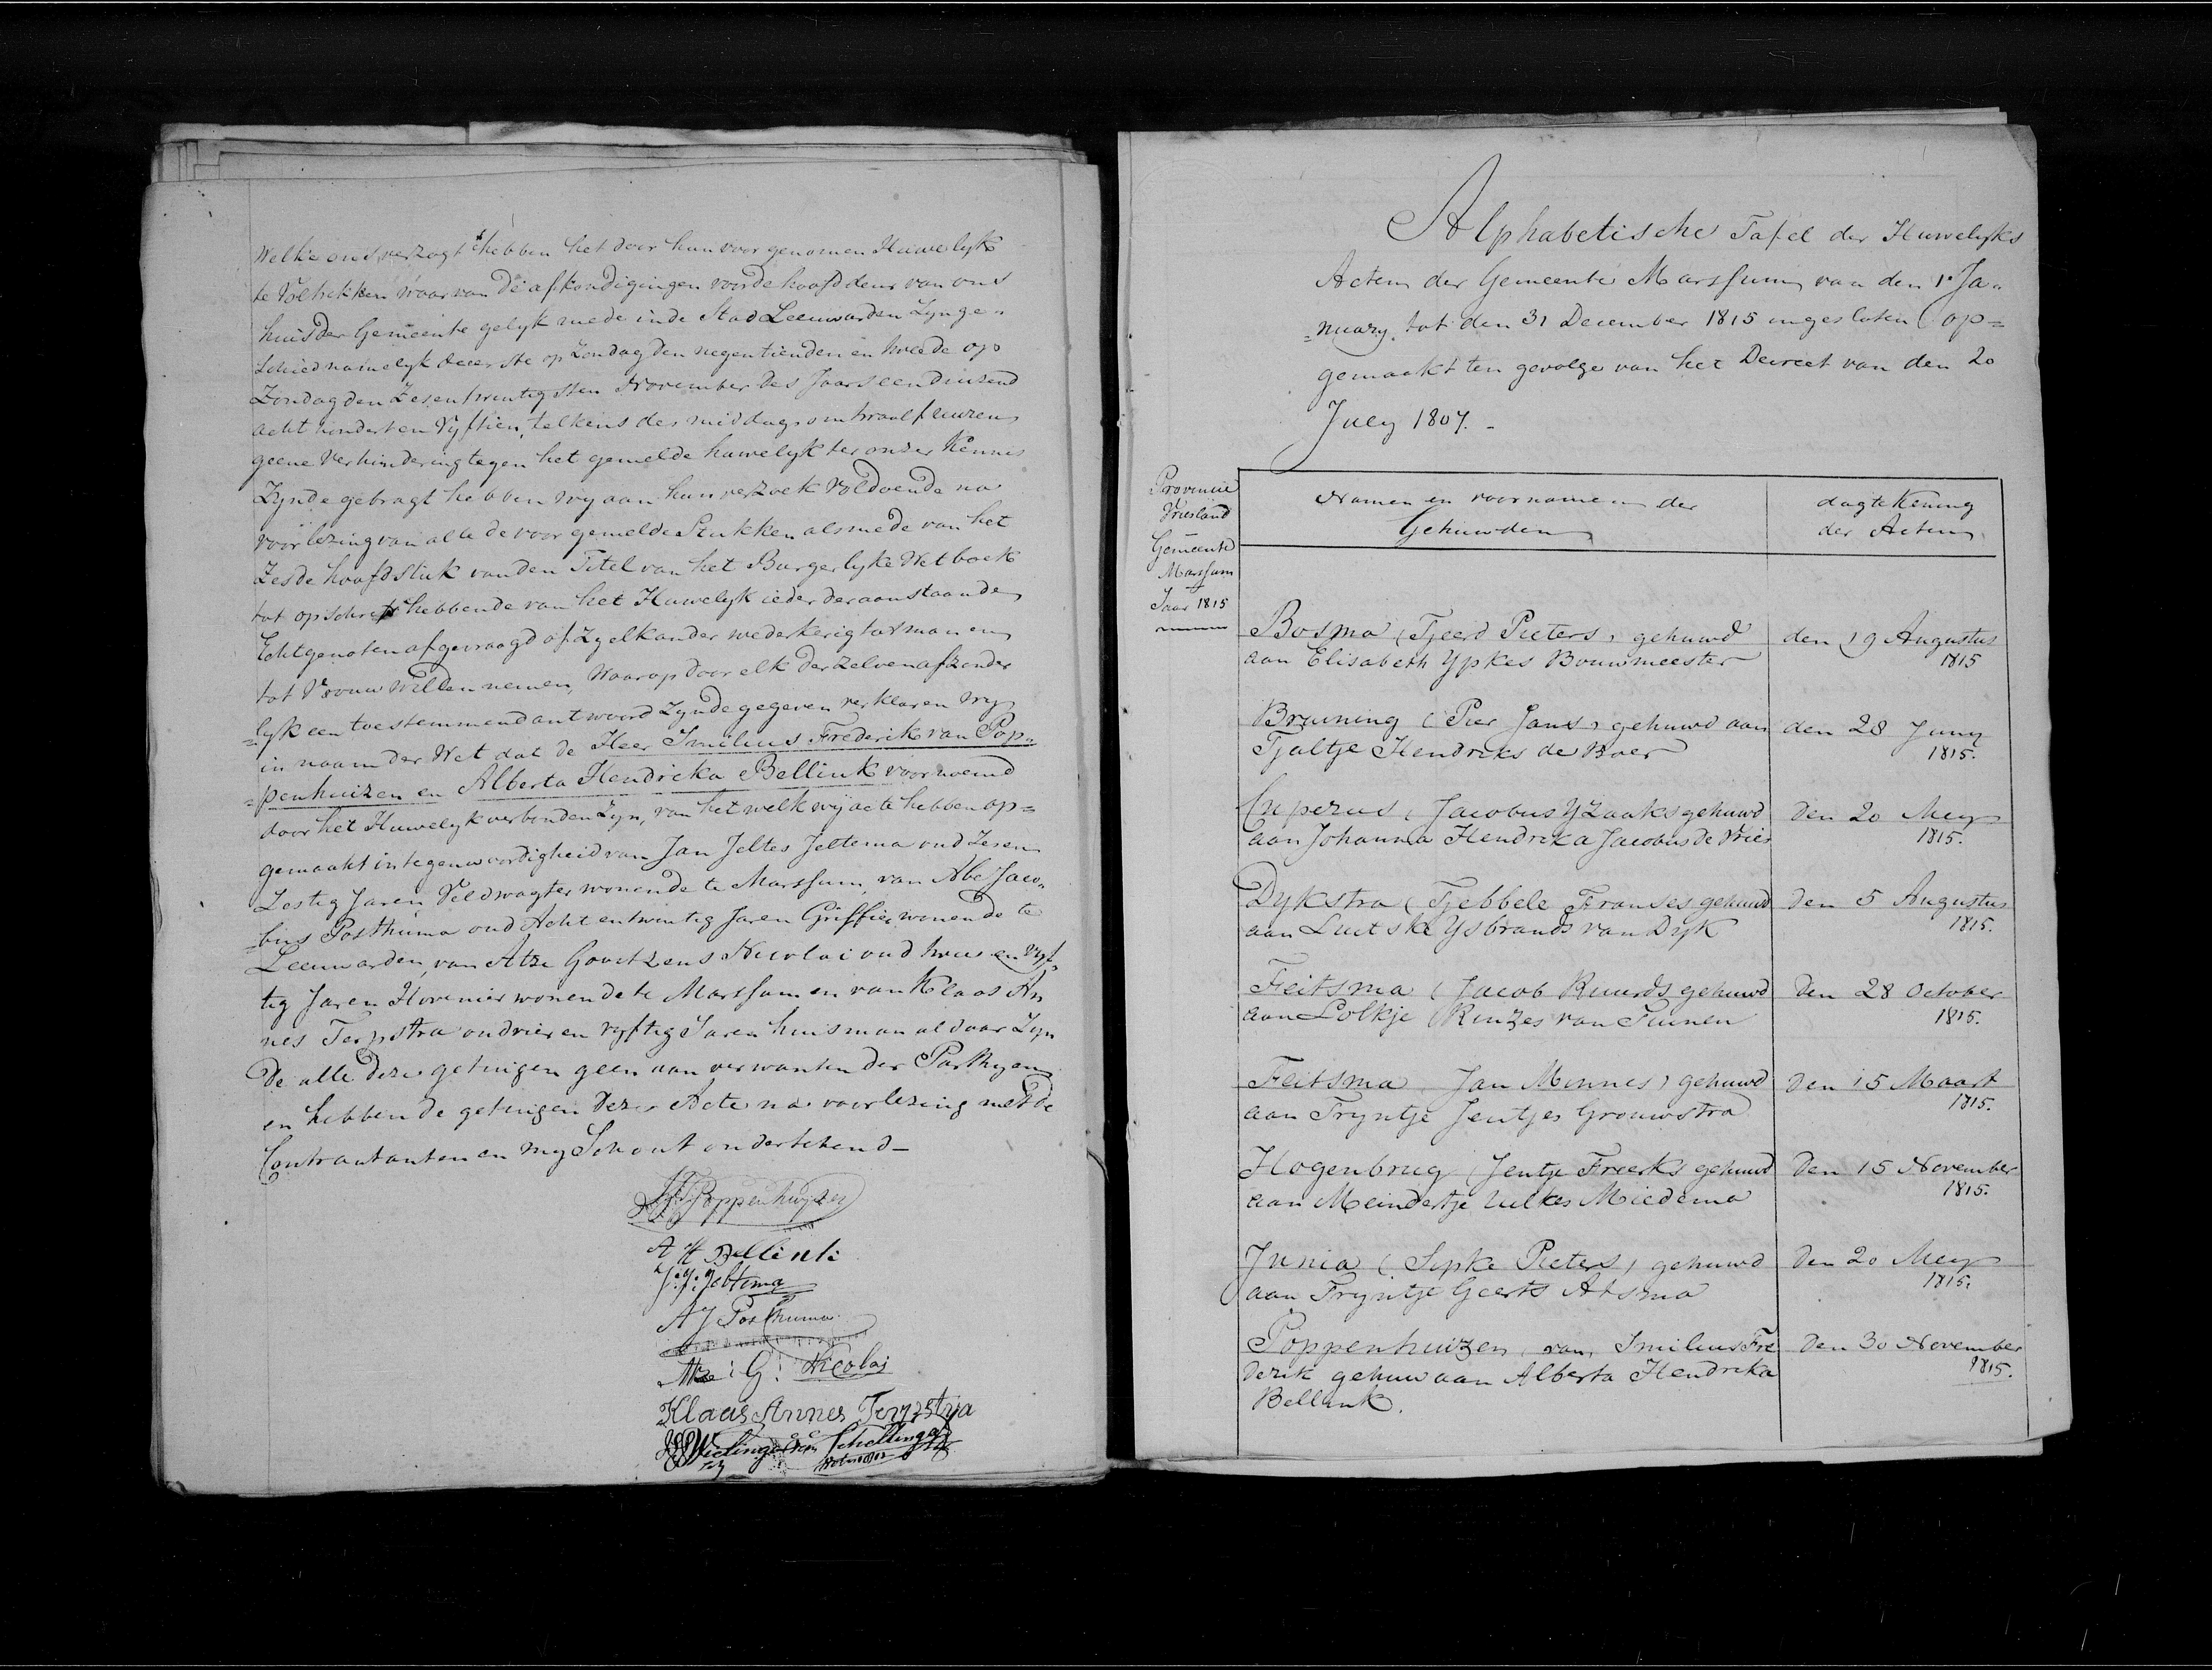 Welke ons verzogt hebben het door hun voorgenomen Huwelyk
te Voltrekken waar van de afkondigingen voor de hoofddeur van ons
huis der Gemeente gelyk mede in de Stad Leeuwarden Zyn ge„
schied namelyk de eerste op Zondag den negentienden en tweede op
Zondag den Zesentwintigsten November des Jaars eenduizend
acht hondert en Vyftien, telkens des middags om twaalf uuren
geene Verhindering tegen het gemelde huwelyk ter onzer Kennis
Zynde gebragt hebben wy aan hun verzoek Voldoende na
voorlezing van alle de voorgemelde Stukken als mede van het
Zesde hoofdstuk van den Titel van het Burgerlyke Wetboek
tot opschrift hebbende van het Huwelyk ieder der aanstaande
Echtgenoten afgevraagd of Zy elkander wederkerig tot man en
tot Vrouw Willen nemen, Waarop door elk derzelven afzonder
=lyk een toestemmend antwoord Zynde gegeven verklaren wy
in naam der Wet dat de Heer Imilius Frederik van Pop=
=penhuizen en Alberta Hendrika Bellink voornoemd
door het Huwelyk verbonden Zyn, van het welk wij acte hebben op=
gemaakt in tegenwoordigheid van Jan Jeltes Jeltema oud Zesen
Zestig Jaren Veldwagter wonende te Marssum, van Abe Jaco„
=bus Posthuma oud Acht entwintig Jaren Griffier wonende te
Leeuwarden, van Atze Govertzens Nicolai oud twee en vyf„
tig Jaren Hovenier wonende te Marssum en van Klaas An
nes Terpstra oud vier en vyftig Jaren huisman aldaar Zyn
de alle deze getuigen geen aan verwanten der Parthyen
en hebben de getuigen deze Acte na voorlezing met de
Contractanten en my Schout ondertekend–
Poppenhuyzen
A H Bellink
J: J: Jeltema
A J Posthuma
Atze: G: Nicolai
Klaas Annes Terpstra
Schellinga
Alphabetische Tafel der Huwelyks
Acten der Gemeente Marssum van den 1e Ja„
=nuary tot den 31 December 1815 ingesloten (op=
gemaakt ten gevolge van het Decreet van den 20
July 1807.-
Provincie
Vriesland
Gemeente
Marssum
Jaar 1815
Namen en voornamen der
Gehuwden
dagtekening
der Acten
Bosma (Tjeerd Pieters) gehuwd
aan Elisabeth Ypkes Bouwmeester
den 19 Augustus
1815
Bruining (Pier Jans) gehuwd aan
Tjaltje Hendriks de Boer
den 28 Juny
1815.
Cuperus (Jacobus YZaaks gehuwd
aan Johanna Hendrika Jacobus de Vries
Den 20 Mey
1815.
Dykstra (Tjebbele Franses gehuwd
aan Luitske Ysbrands van Dyk
Den 5 Augustus
1815.
Feitsma (Jacob Ruurds gehuwd
aan Lolkje Rinzes van Tuinen
Den 28 October
1815.
Feitsma Jan Minnes) gehuwd
aan Tryntje Jentjes Grouwstra
Den 15 Maart
1815.
Hogenbrug (Jentje Freerks gehuwd
aan Meindertje Uilkes Miedema
Den 15 November
1815.
Junia (Sipke Pieters) gehuwd
aan Tryntje Geerts Atsma
Den 20 Mey
1815.
Poppenhuizen (van) Imilius Fre
derik gehuw aan Alberta Hendrika
Bellink.
Den 30 November
1815.